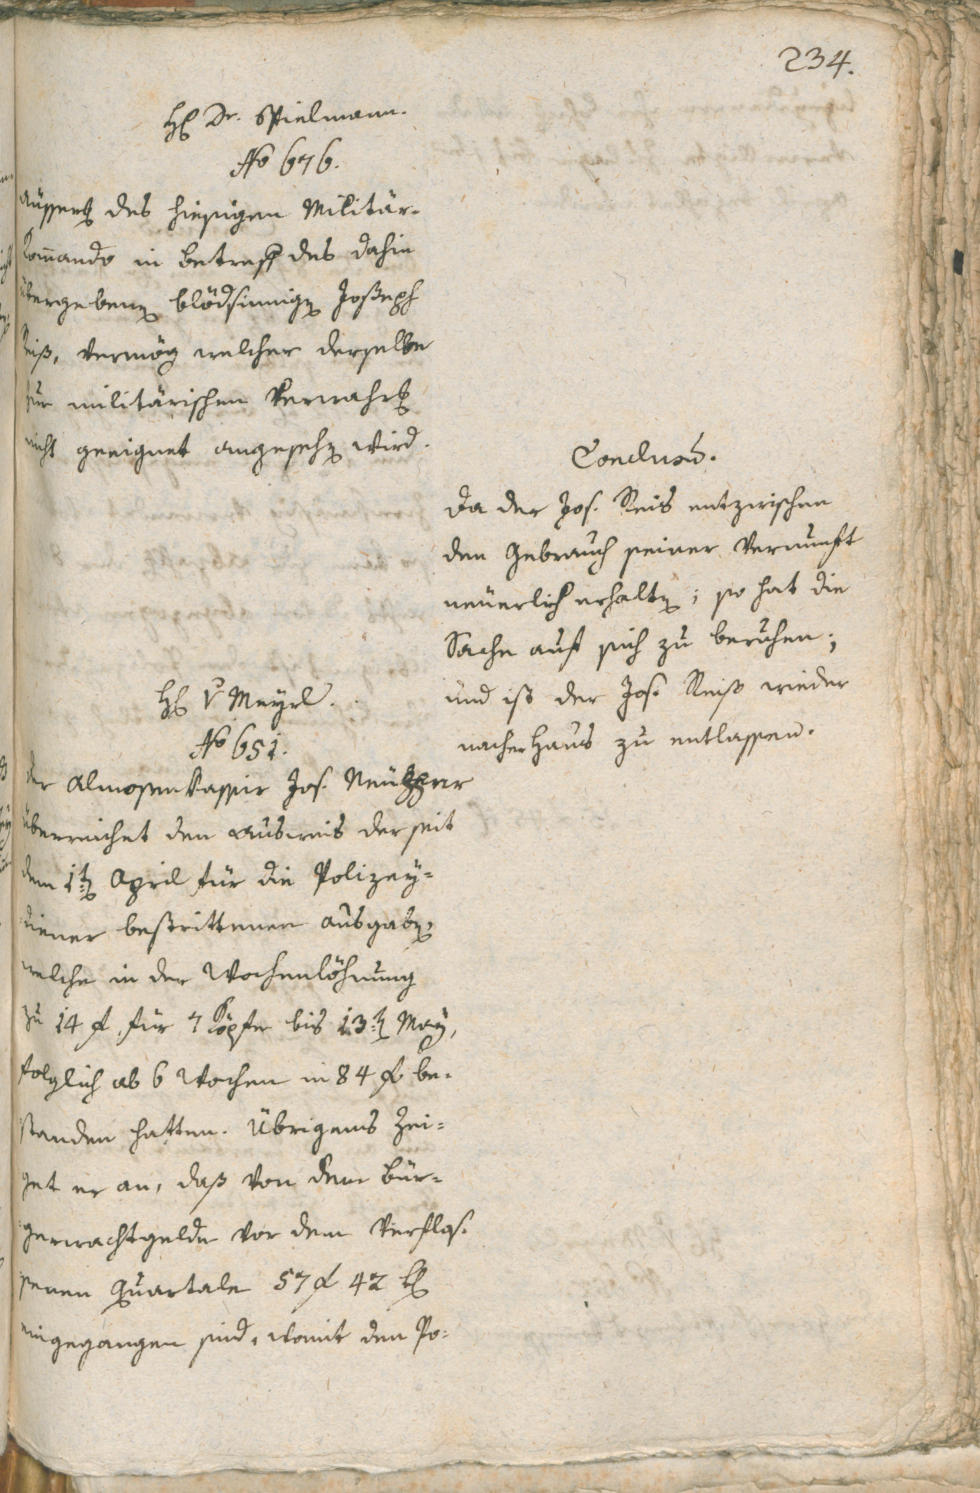 234.
H. Dr. Spielmann.
No 676.
Äusserung des hiesigen Militär-
Commando in betreff des dahin
übergebenen blödsinnigen Joseph
Reiß, vermög welcher derselbe
zur militärischen Verwahrung
nicht geeignet angesehen wird.
Conclusum.
Da der Jos. Reis entzwischen
den Gebrauch seiner Vernunft
neuerlich erhalten; so hat die
Sache auf sich zu beruhen;
und ist der Jos. Reiß wieder
nacher Haus zu entlassen.
H. v Mayrl.
No 651.
der Almosenkassir Jos.
überreichet den Ausweis der seit
dem 1ten April für die Polizey-
diener bestrittenen Ausgaben,
welche in der Wochenlöhnung
zu 14 f. für 7 Köpfe bis 13ten May,
folglich ab 6 Wochen in 84 f. be-
standen hatten. Übrigens zei-
get er an, daß von dem Bür-
gerwachtgelde vor dem verflos-
senen Quartale 57 f 42 kr
eingegangen sind, womit den Po-